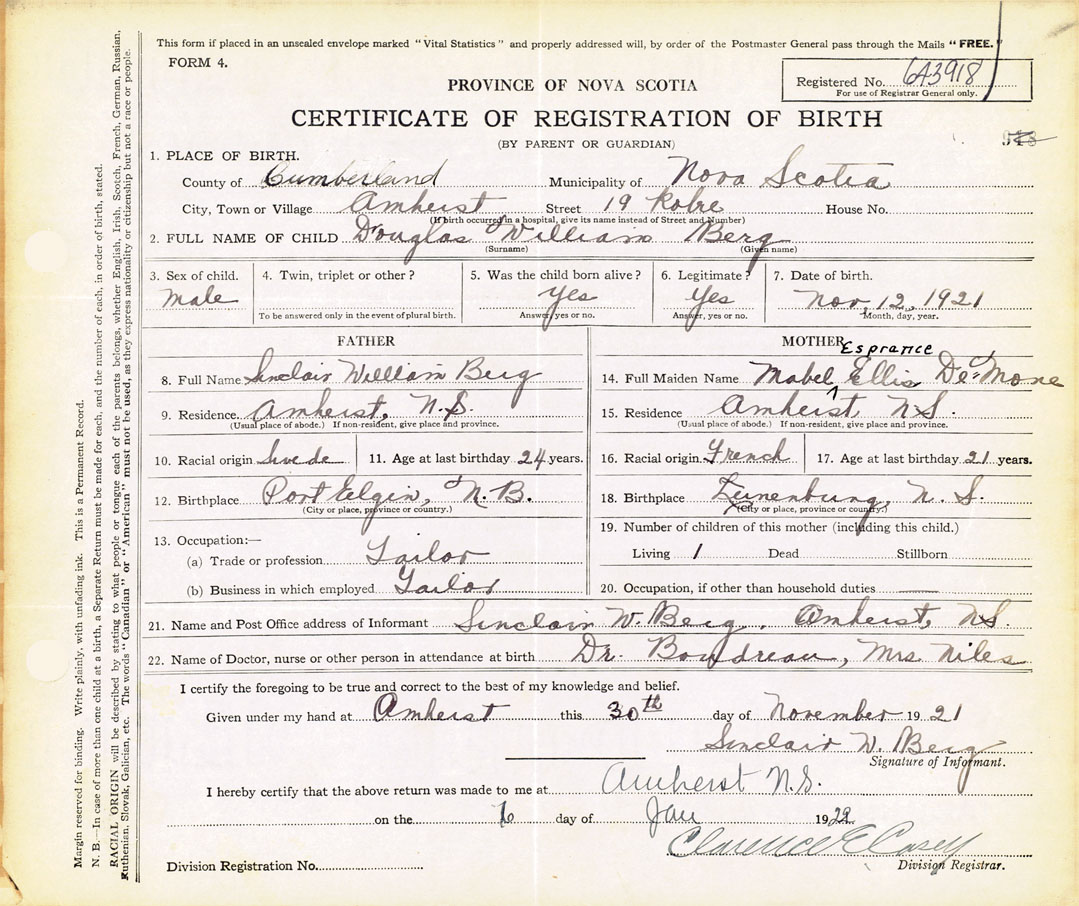 This form if placed in an unsealed envelope marked "Vital Statistics" and properly addressed will, by order of the Postmaster General pass through the Mails "FREE."
FORM 4.
Registered No. 6A3918
For use of Registrar General only.
PROVINCE OF NOVA SCOTIA
CERTIFICATE OF REGISTRATION OF BIRTH
(BY PARENT OR GUARDIAN)
1. PLACE OF BIRTH.
County of Cumberland Municipality of Nova Scotia
City, Town or Village Amherst Street 19 Robie House No.
(If birth occurred in a hospital, give its name instead of Street and Number)
2. FULL NAME OF CHILD Douglas William Berg
(Surname) (Given name)
3. Sex of child. 4. Twin, triplet or other? 5. Was the child born alive? 6. Legitimate? 7. Date of birth.
male yes Yes Nov 12, 1921
To be answered only in the event of plural birth. Answer, yes or no. Answer, yes or no. Month, day, year.
FATHER
8. Full Name Sinclair William Berg
9. Residence Amherst, N.S.
(Usual place of abode.) If non-resident, give place and province.
10. Racial origin Swede 11. Age at last birthday 24 years.
12. Birthplace Port Elgin, N.B.
(City or place, province or country.)
13. Occupation:—
(a) Trade or profession Tailor
(b) Business in which employed Tailor
MOTHER
Esprance
14. Full Maiden Name Mabel Ellis DeMone
15. Residence Amherst, N.S.
(Usual place of abode.) If non-resident, give place and province.
16. Racial origin French 17. Age at last birthday 21 years.
18. Birthplace Lunenburg, N.S.
(City or place, province or country.)
19. Number of children of this mother (including this child.)
Living 1 Dead Stillborn
20. Occupation, if other than household duties
21. Name and Post Office address of Informant Sinclair W. Berg, Amherst, N.S.
22. Name of Doctor, nurse or other person in attendance at birth Dr. Boudreau, Mrs Niles
I certify the foregoing to be true and correct to the best of my knowledge and belief.
Given under my hand at Amherst this 30th day of November 1921
Sinclair W. Berg
Signature of Informant.
I hereby certify that the above return was made to me at Amherst N.S.
on the day of Jan 1922
Clarence E Casey
Division Registrar.
Division Registration No.
Margin reserved for binding. Write plainly, with unfading ink. This is a Permanent Record.
N. B.—In case of more than one child at a birth, a Separate Return must be made for each, and the number of each, in order of birth, stated.
RACIAL ORIGIN will be described by stating to what people or tongue each of the parents belongs, whether English, Irish, Scotch, French, German, Russian,
Ruthenian, Slovak, Galician, etc. The words "Canadian" or "American" must not be used, as they express nationality or citizenship but not a race or people.